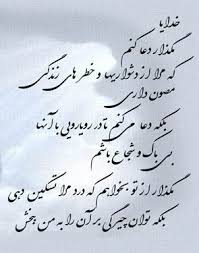 خدایا
نگذار دعا کنم
که مرا از دشواریها و خطر های زندگی
مصون داری
بلکه دعا می کنم تا در رویارویی با آنها
بی باک و شجاع باشم
نگذار از تو بخواهم که درد مرا تسکین دهی
بلکه توان چیرگی بر آن را به من ببخش